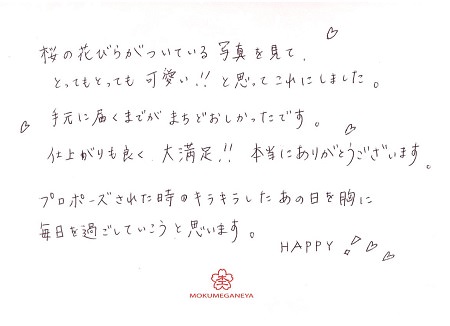 桜の花びらがついている写真を見て、
とってもとっても可愛い!!と思ってこれにしました。
手元に届くまでがまちどおしかったです。
仕上がりも良く、大満足!!本当にありがとうございます。
プロポーズされた時のキラキラしたあの日を胸に
毎日を過ごしていこうと思います。
HAPPY!
MOKUMEGANEYA